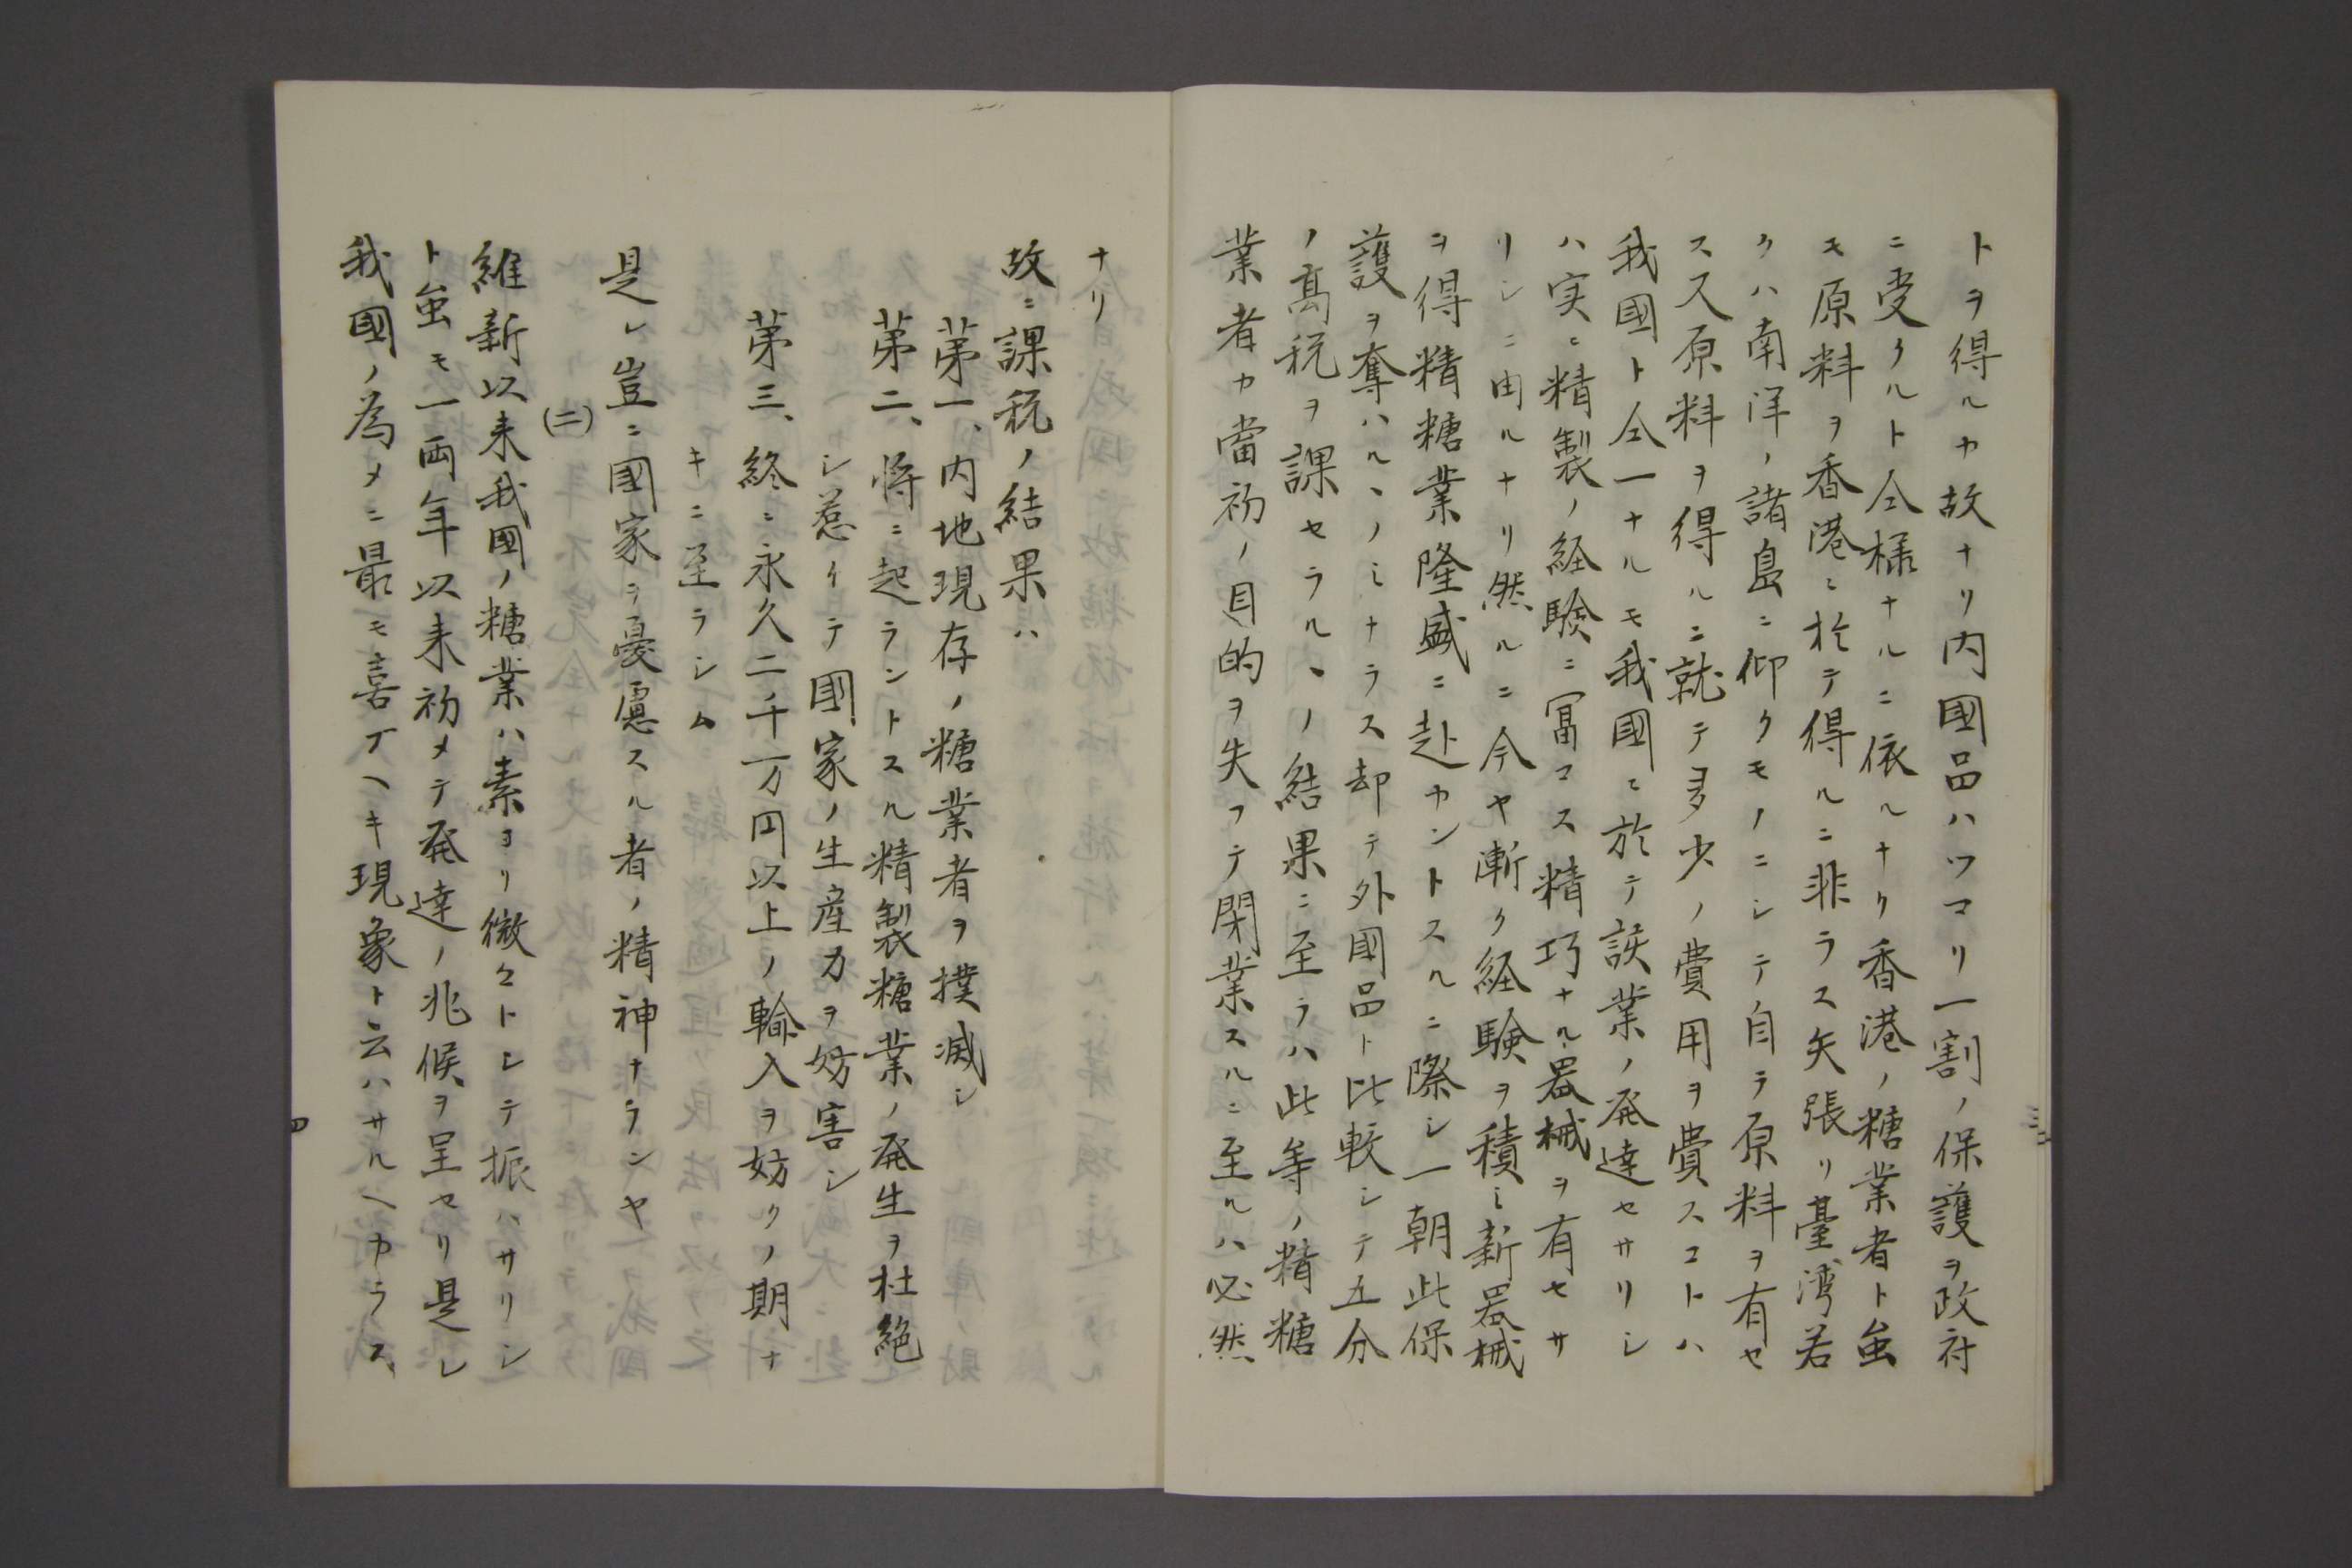 トヲ得ルカ故ナリ内國品ハツマリ一割ノ保護ヲ政府
ニ受クルト仝様ナルニ依ルナリ香港ノ糖業者ト虽
モ原料ヲ香港ニ於テ得ルニ非ラス矢張リ臺湾若
クハ南洋ノ諸島ニ仰クモノニシテ自ラ原料ヲ有セ
ス又原料ヲ得ルニ就テ多少ノ費用ヲ費スコトハ
我國ト仝一ナルモ我國ニ於テ該業ノ発達セサリシ
ハ実ニ精製ノ経験ニ冨マス精巧ナル器械ヲ有セサ
リシニ由ルナリ然ルニ今ヤ漸ク経験ヲ積ミ新器械
ヲ得精糖業隆盛ニ赴カントスルニ際シ一朝此保
護ヲ奪ハルヽノミナラス却テ外國品ト比較シテ五分
ノ高税ヲ課セラルヽノ結果ニ至ラハ此等ノ精糖
業者カ當初ノ目的ヲ失フテ閉業スルニ至ルハ必然
ナリ
故ニ課税ノ結果ハ
第一、内地現存ノ糖業者ヲ撲滅シ
第二、将ニ起ラントスル精製糖業ノ発生ヲ杜絶
シ惹イテ國家ノ生産力ヲ妨害シ
第三、終ニ永久二千万円以上ノ輸入ヲ妨クノ期ナ
キニ至ラシム
是レ豈ニ國家ヲ憂慮スル者ノ精神ナランヤ
(二)
維新以来我國ノ糖業ハ素ヨリ微々トシテ振ハサリシ
ト虽モ一両年以来初メテ発達ノ兆候ヲ呈セリ是レ
我國ノ為メニ最モ喜フヘキ現象ト云ハサルヘカラス
四